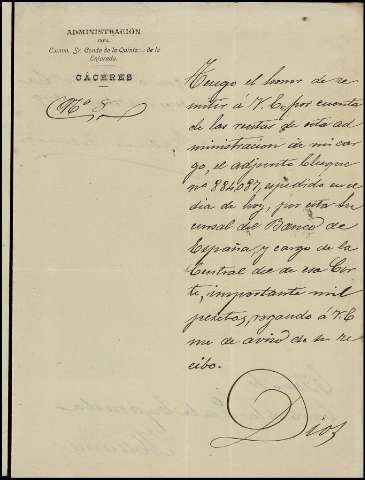 ADMINISTRACIÓN
DEL
Excmo. Sr. Conde de la Quinta de la
Enjarada
CÁCERES
No. 8.
Tengo el honor de re
mitir á V. E. por cuenta
de las rentas de esta ad
ministracion de mi car
go, el adjunto Cheque
nº 884087, expedido en el
dia de hoy, por esta Su
cursal del Banco de
España y cargo de la
Central de esa Cor
te, importante mil
pesetas, rogando á V. E
me de aviso de su re
cibo.
Dios